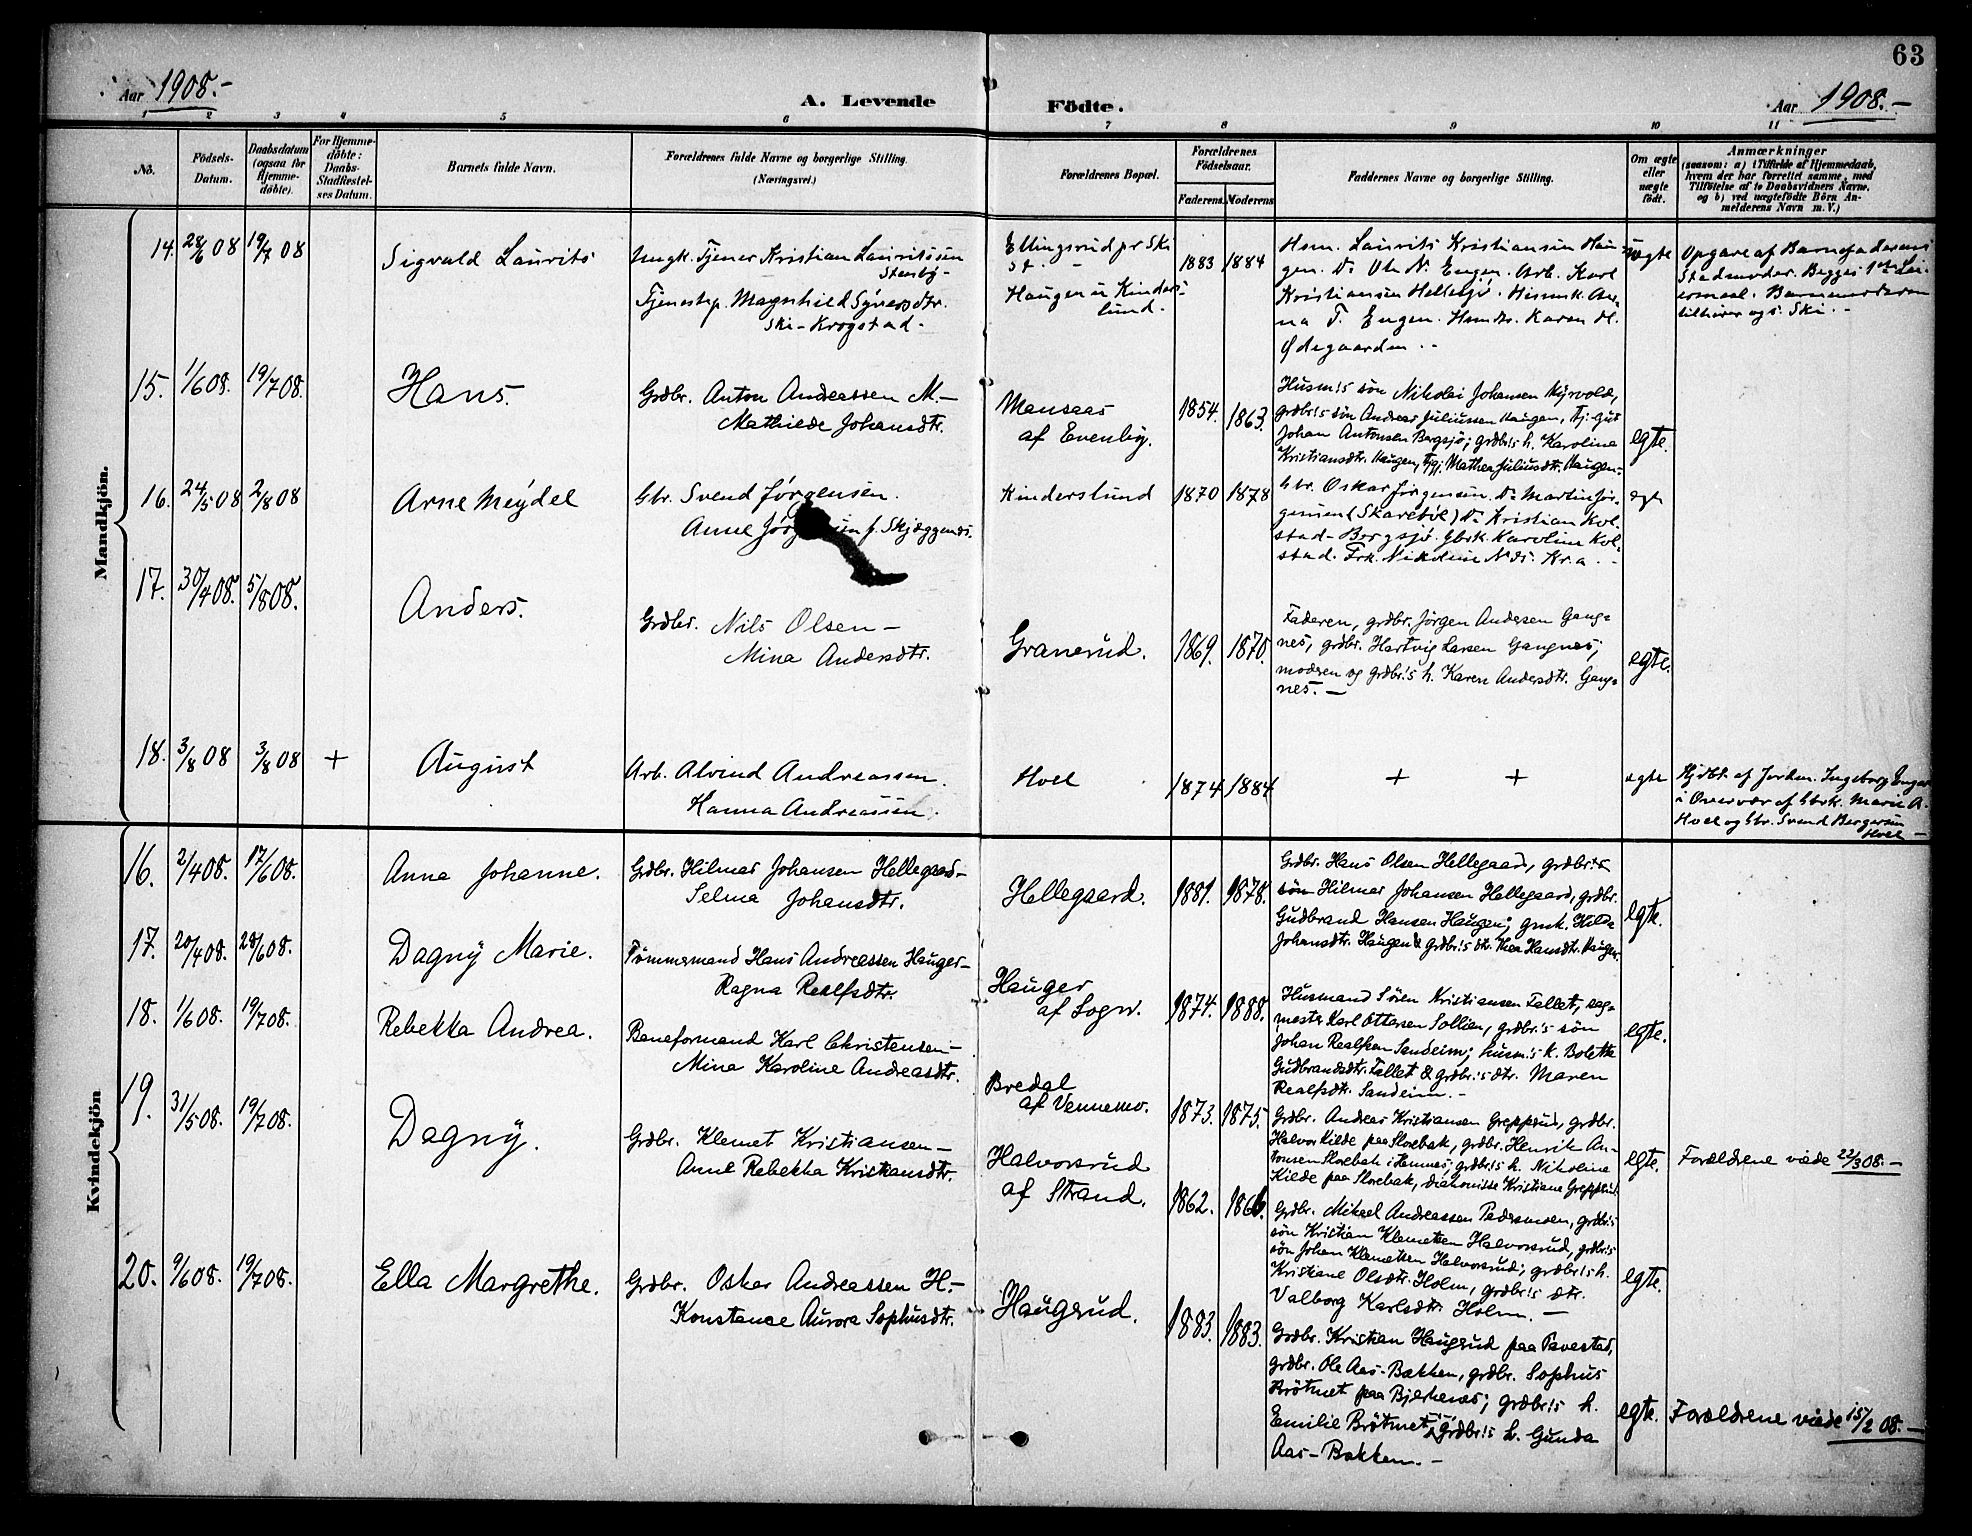 63
Aar 1908.-
A. Levende Födte.
Aar 1908.-
1 2 3 4 5 6 7 8 9 10 11
No.
Födsels-
Datum.
Daabsdatum
(ogsaa for
Hjemme-
döbte).
For Hjemme-
döbte:
Daabs-
Stadfæstel-
ses Datum.
Barnets fulde Navn.
Forældrenes fulde Navne og borgerlige Stilling.
(Næringsvei.)
Forældrenes Bopæl.
Forældrenes
Födselsaar.
Faderens. Moderens.
Faddernes Navne og borgerlige Stilling.
Om ægte
eller
uægte
födt.
Anmærkninger
(saasom: a) i Tilfælde af Hjemmedaab,
hvem der har forrettet samme, med
Tilföielse af to Daabsvidners Navne,
og b) ved uægtefödte Börn An-
melderens Navn m. V.)
Mandkjön.
14. 28/6 08 19/7 08
Sigvald Laurits
Ungk. Tjener Kristian Lauritssen
Stenby-
Tjenestep. Magnhild Syversdtr.
Ski-Krogstad.
Ellingsrud pr Ski
st. -
Haugen u Kinders-
lund.
1883 1884
Hsm. Laurits Kristiansen Hau-
gen. Do Ole N. Engen. Arb. Karl
Kristiansen Hellesjö. Hsmk. An-
na T. Engen. Hsmdtr. Karen M.
Ødegaarden . -
uægte
Opgave af Barnefaderens
Begges 1ste Lei-
ermaal. Barnemoderen
tilhører ogs. Ski. -
15. 1/6 08. 19/7 08.
Hans.
Grdbr. Anton Andreassen M-
Mathilde Johansdtr.
Mansaas
af Evenby.
1854. 1863.
Husm!s søn Nikolai Johansen Myrvold,
grdbr!s søn Andreas Juliussen Haugen, tj. gut
Johan Antonsen Bergsjø; grdbr!s h. Karoline
Kristiansdtr. Haugen, tjpg. Mathea Juliusdtr. Haugen-
egte.
16. 24/5 08 2/8 08
Arne Meydel
Gbr. Svend Jørgensen.
Anne f. Skjæggenæs.
Kinderslund
1870 1878
Gbr. Oskar Jørgensen. Do Martin Jør-
gensen (Skarebøl) Do Kristian Kol-
stad-Bergsjø. Gbrk. Karoline Kol-
stad. Frk. Nikoline Kr.a. -
egte
17. 30/4 08. 5/8 08.
Anders.
Grdbr. Nils Olsen-
Mina Andersdtr.
Granerud.
1869. 1870.
Faderen, grdbr. Jørgen Andersen Gang-
nes, grdbr. Hartvig Larsen Gangnes;
moderen og grdbr!s h. Karen Andersdtr. Gang-
nes. -
egte.
18. 3/8 08 3/8 08 +
August
Arb. Alvind Andreassen.
Hanna Andreassen.
Hoel
1874 1884
+ +
egte
Hjdbt. af Jordm. Ingeborg Engen
i Overvær af Gbrk. Marie A.
Hoel og Gbr. Svend Bergersen
Hoel -
Kvindekjön
16. 2/4 08. 17/6 08.
Anna Johanne.
Grdbr. Hilmar Johansen Hellegaard-
Selma Johansdtr.
Hellegaard.
1881. 1878.
Grdbr. Hans Olsen Hellegaard, grdbr.
søn Hilmar Johansen Hellegaard, grdbr.
Gudbrand Hansen Haugen; gmk. Hilda
Johansdtr. Haugen & grdbr!s dtr. Thea Hansdtr. Haugen.
egte.
17. 20/4 08. 28/6 08.
Dagny Marie.
Tømmermand Hans Andreassen Hauger-
Ragna Realfsdtr.
Hauger
af Sogn.
1874. 1888.
Husmand Søren Kristiansen Fallet, sag-
mester Karl Ottersen Sollien, grdbr.!s søn
Johan Realfsen Sandeim; husm!s k. Bolette
Gudbrandsdtr. Fallet & grdbr.!s dtr. Maren
Realfsdtr. Sandeim. -
egte.
18. 1/6 08. 19/7 08.
Rebekka Andrea.
Baneformand Karl Christensen-
Mina Karoline Andreasdtr.
Bredal
af Vennemo.
1873. 1875.
Grdbr. Andreas Kristiansen Grepperud, grdbr.
Halvor Kilde paa Slorebak, grdbr. Henrik An-
tonsen Slorebak i Hemnes; grdbr.!s h. Nikoline
Kilde paa Slorebak, diakonisse Kristiane Grepperud.
egte.
Forældrene viede 22/3 08. -
19. 31/5 08. 19/7 08.
Dagny.
Grdbr. Klemet Kristiansen-
Anne Rebekka Kristiansdtr.
Halvorsrud
af Strand.
1862. 1866.
Grdbr. Mikael Andreassen Pedersen, grdbr!s
søn Kristian Klemetsen Halvorsrud, grdbr!s
søn Johan Klemetsen Halvorsrud; grdbr!s h.
Kristiane Olsdtr. Holm, grdbr!s dtr.
Valborg Karlsdtr. Holm. -
egte.
20. 9/6 08. 19/7 08.
Ella Margrethe.
Grdbr. Oskar Andreassen H.-
Konstance Aurora Sophusdtr.
Haugerud.
1883. 1883.
Grdbr. Kristian Haugerud paa Tavestad,
grdbr. Ole Aas-Bakken, grdbr. Sophus
Brötmet paa Bjerkenes; grdbr!s h.
Emilie Brötmet & grdbr!s h. Gunda
Aas-Bakken. -
egte.
Forældrene viede 15/2 08. -